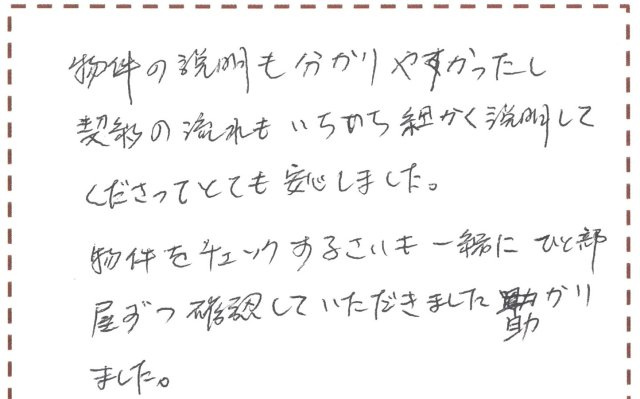 物件の説明も分かりやすかったし
契約の流れもいちから細かく説明して
くださってとても安心しました。
物件をチェックするさいも一緒にひと部
屋ずつ確認していただきました助かり
ました。